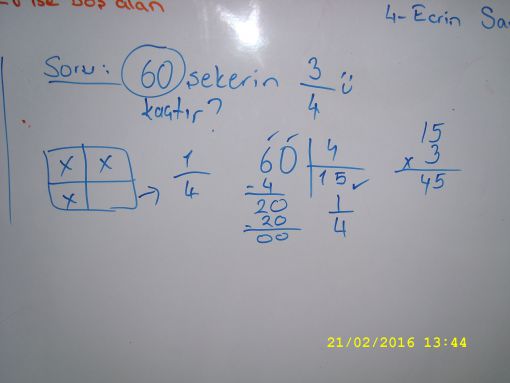 ise boş alan
4- Ecrin
Soru: 60 şekerin 3/4 ü
kaçtır?
x x
x
1/4
60 | 4
15 ✓
- 4
20
- 20
00
1/4
15
x 3
45
21/02/2016 13:44